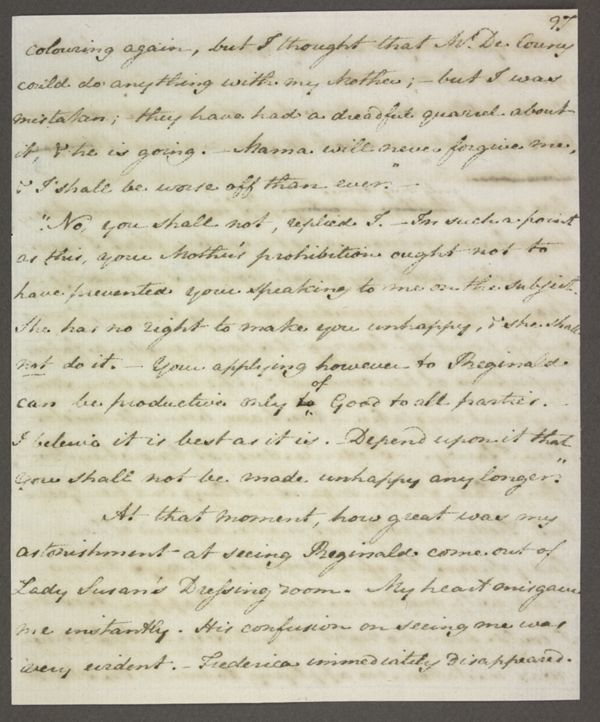 97
colouring again, but I thought that Mr. De Courcy
could do anything with my Mother; – but I was
mistaken; – they have had a dreadful quarrel about
it, & he is going. – Mama will never forgive me,
& I shall be worse off than ever." –
"No, you shall not, replied I. – In such a point
as this, your Mother's prohibition ought not to
have prevented your speaking to me on the subject.
She has no right to make you unhappy, & she shall
not do it. – Your applying however to Reginald
can be productive only to of Good to all parties. –
I beleive it is best as it is. – Depend upon it that
you shall not be made unhappy any longer."
At that moment, how great was my
astonishment at seeing Reginald come out of
Lady Susan's Dressing room. My heart misgave
me instantly. His confusion on seeing me was
very evident. – Frederica immediately disappeared.